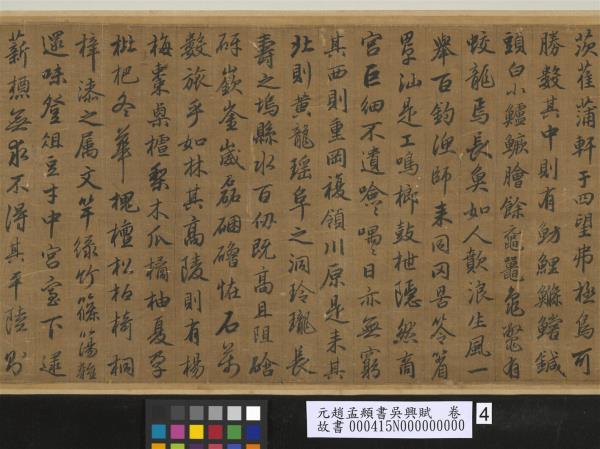 茨藋蒲軒于四望弗極烏可
勝數其中則有魴鯉鰷鱨鍼
頭白小鱸鱖膾餘黿鼉龜鱉有
蛟龍焉長魚如人歕浪生風一
舉百鈞漁師來同罔罟笭箵
罩汕是工鳴榔鼓枻隱然商
宮巨細不遺噞々喁々日亦無窮
其西則重岡複領川原是來其
北則黃龍瑤阜之洞玲瓏長
壽之塢縣水百仞既高且阻硌
砢嶔崟崴磊硱磳怪石萬
數旅乎如林其高陵則有楊
梅棗栗樝梨木瓜橘柚夏孕
枇杷冬華槐檀松柏椅桐
梓漆之属文竿綠竹篠簜雜
遝味登俎豆才中宮室下逮
薪槱無求不得其平陸則
元趙孟頫書吳興賦 卷
故書 000415N000000000
4